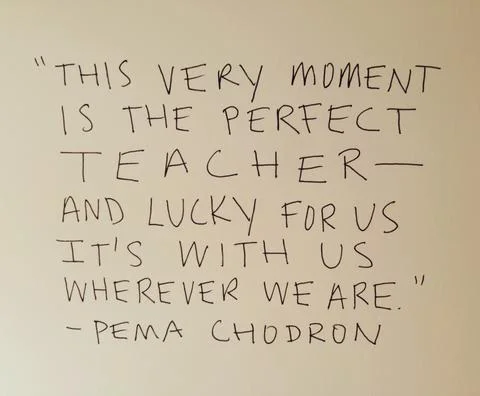 "THIS VERY MOMENT
IS THE PERFECT
TEACHER—
AND LUCKY FOR US
IT'S WITH US
WHEREVER WE ARE."
-PEMA CHODRON